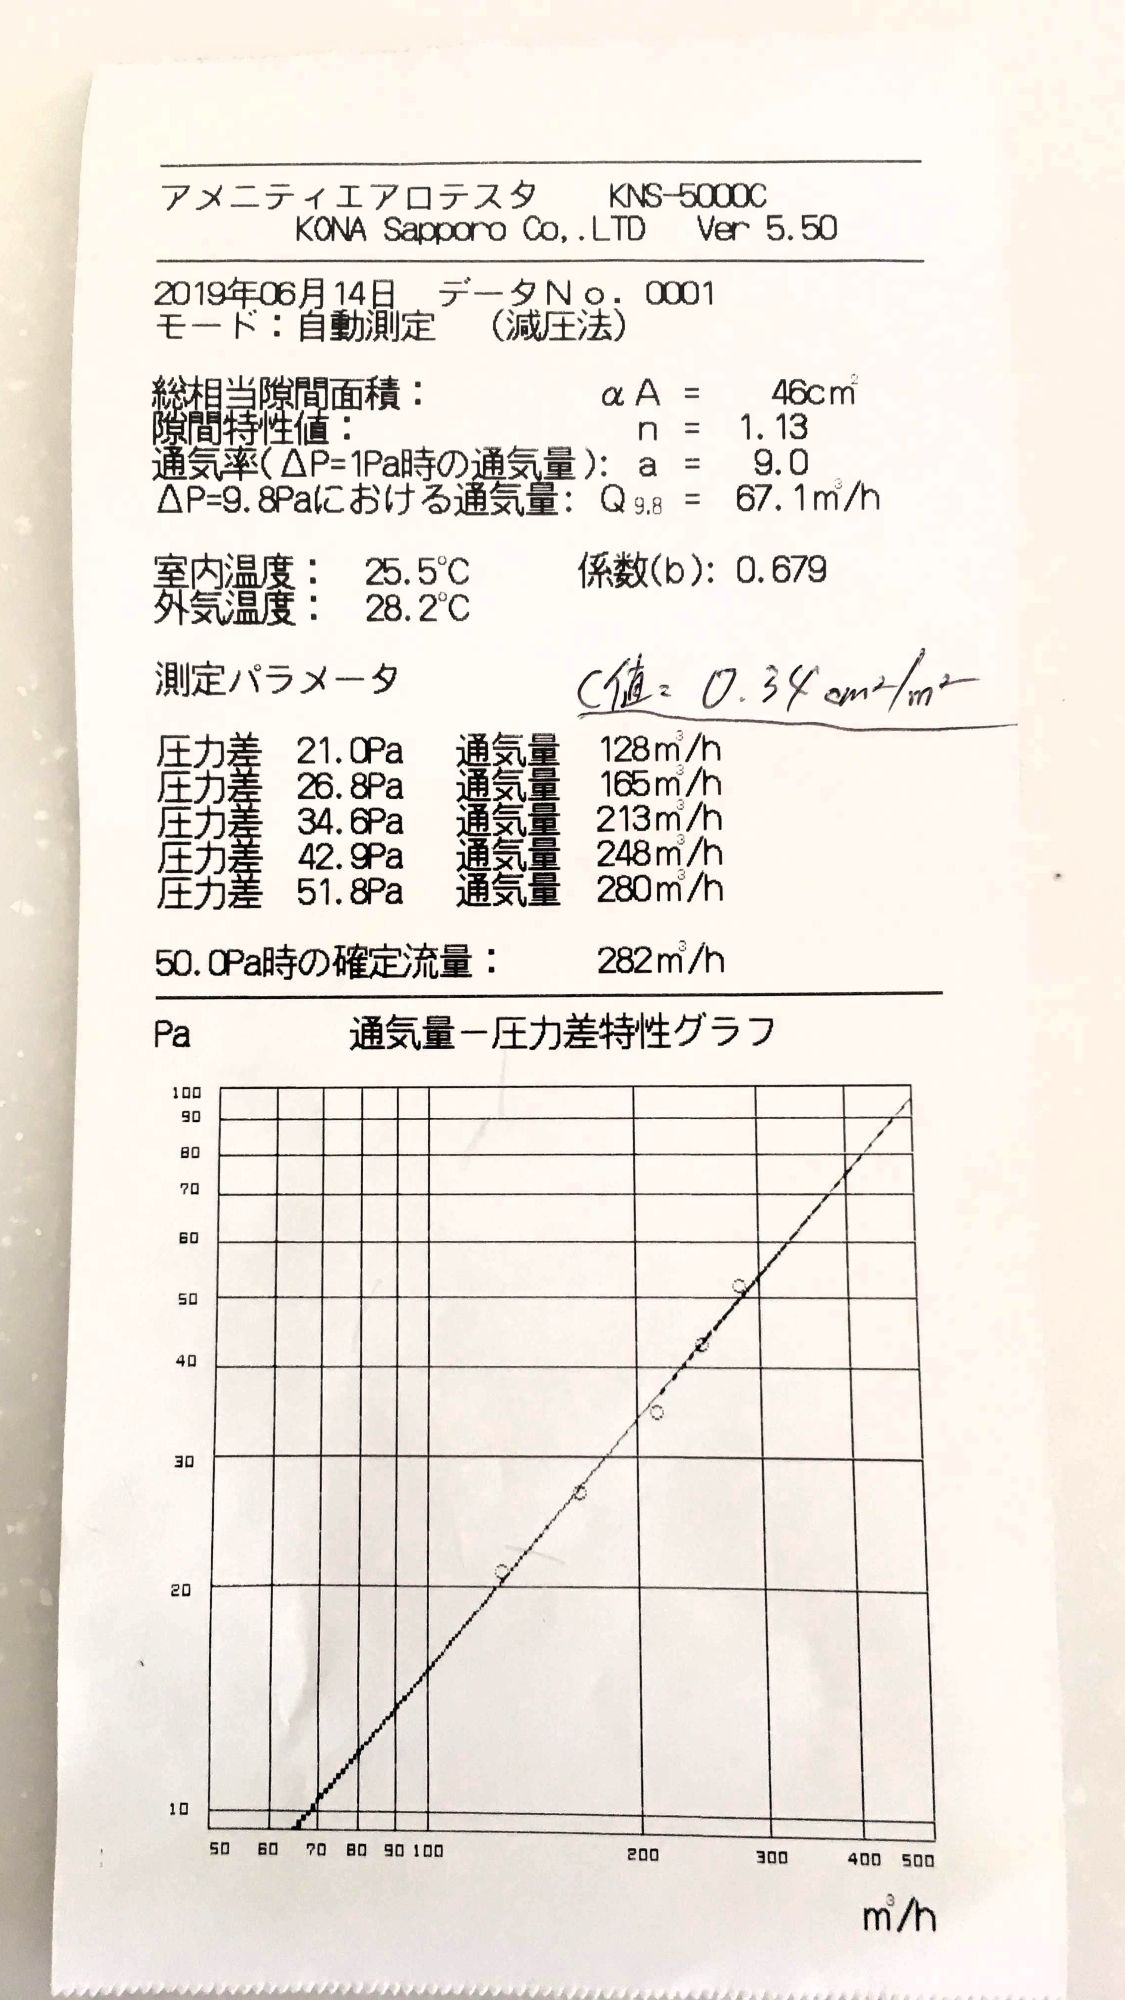 アメニティエアロテスタ KNS-5000C
KONA Sapporo Co,.LTD Ver 5.50
2019年06月14日 データNo. 0001
モード：自動測定 （減圧法）
総相当隙間面積： αA = 46cm²
隙間特性値： n = 1.13
通気率(ΔP=1Pa時の通気量): a = 9.0
ΔP=9.8Paにおける通気量: Q9.8 = 67.1m³/h
室内温度： 25.5℃ 係数(b): 0.679
外気温度： 28.2℃
測定パラメータ
C値= 0.34 cm²/m²
圧力差 21.0Pa 通気量 128m³/h
圧力差 26.8Pa 通気量 165m³/h
圧力差 34.6Pa 通気量 213m³/h
圧力差 42.9Pa 通気量 248m³/h
圧力差 51.8Pa 通気量 280m³/h
50.0Pa時の確定流量： 282m³/h
Pa 通気量－圧力差特性グラフ
100
90
80
70
60
50
40
30
20
10
50 60 70 80 90 100 200 300 400 500
m³/h